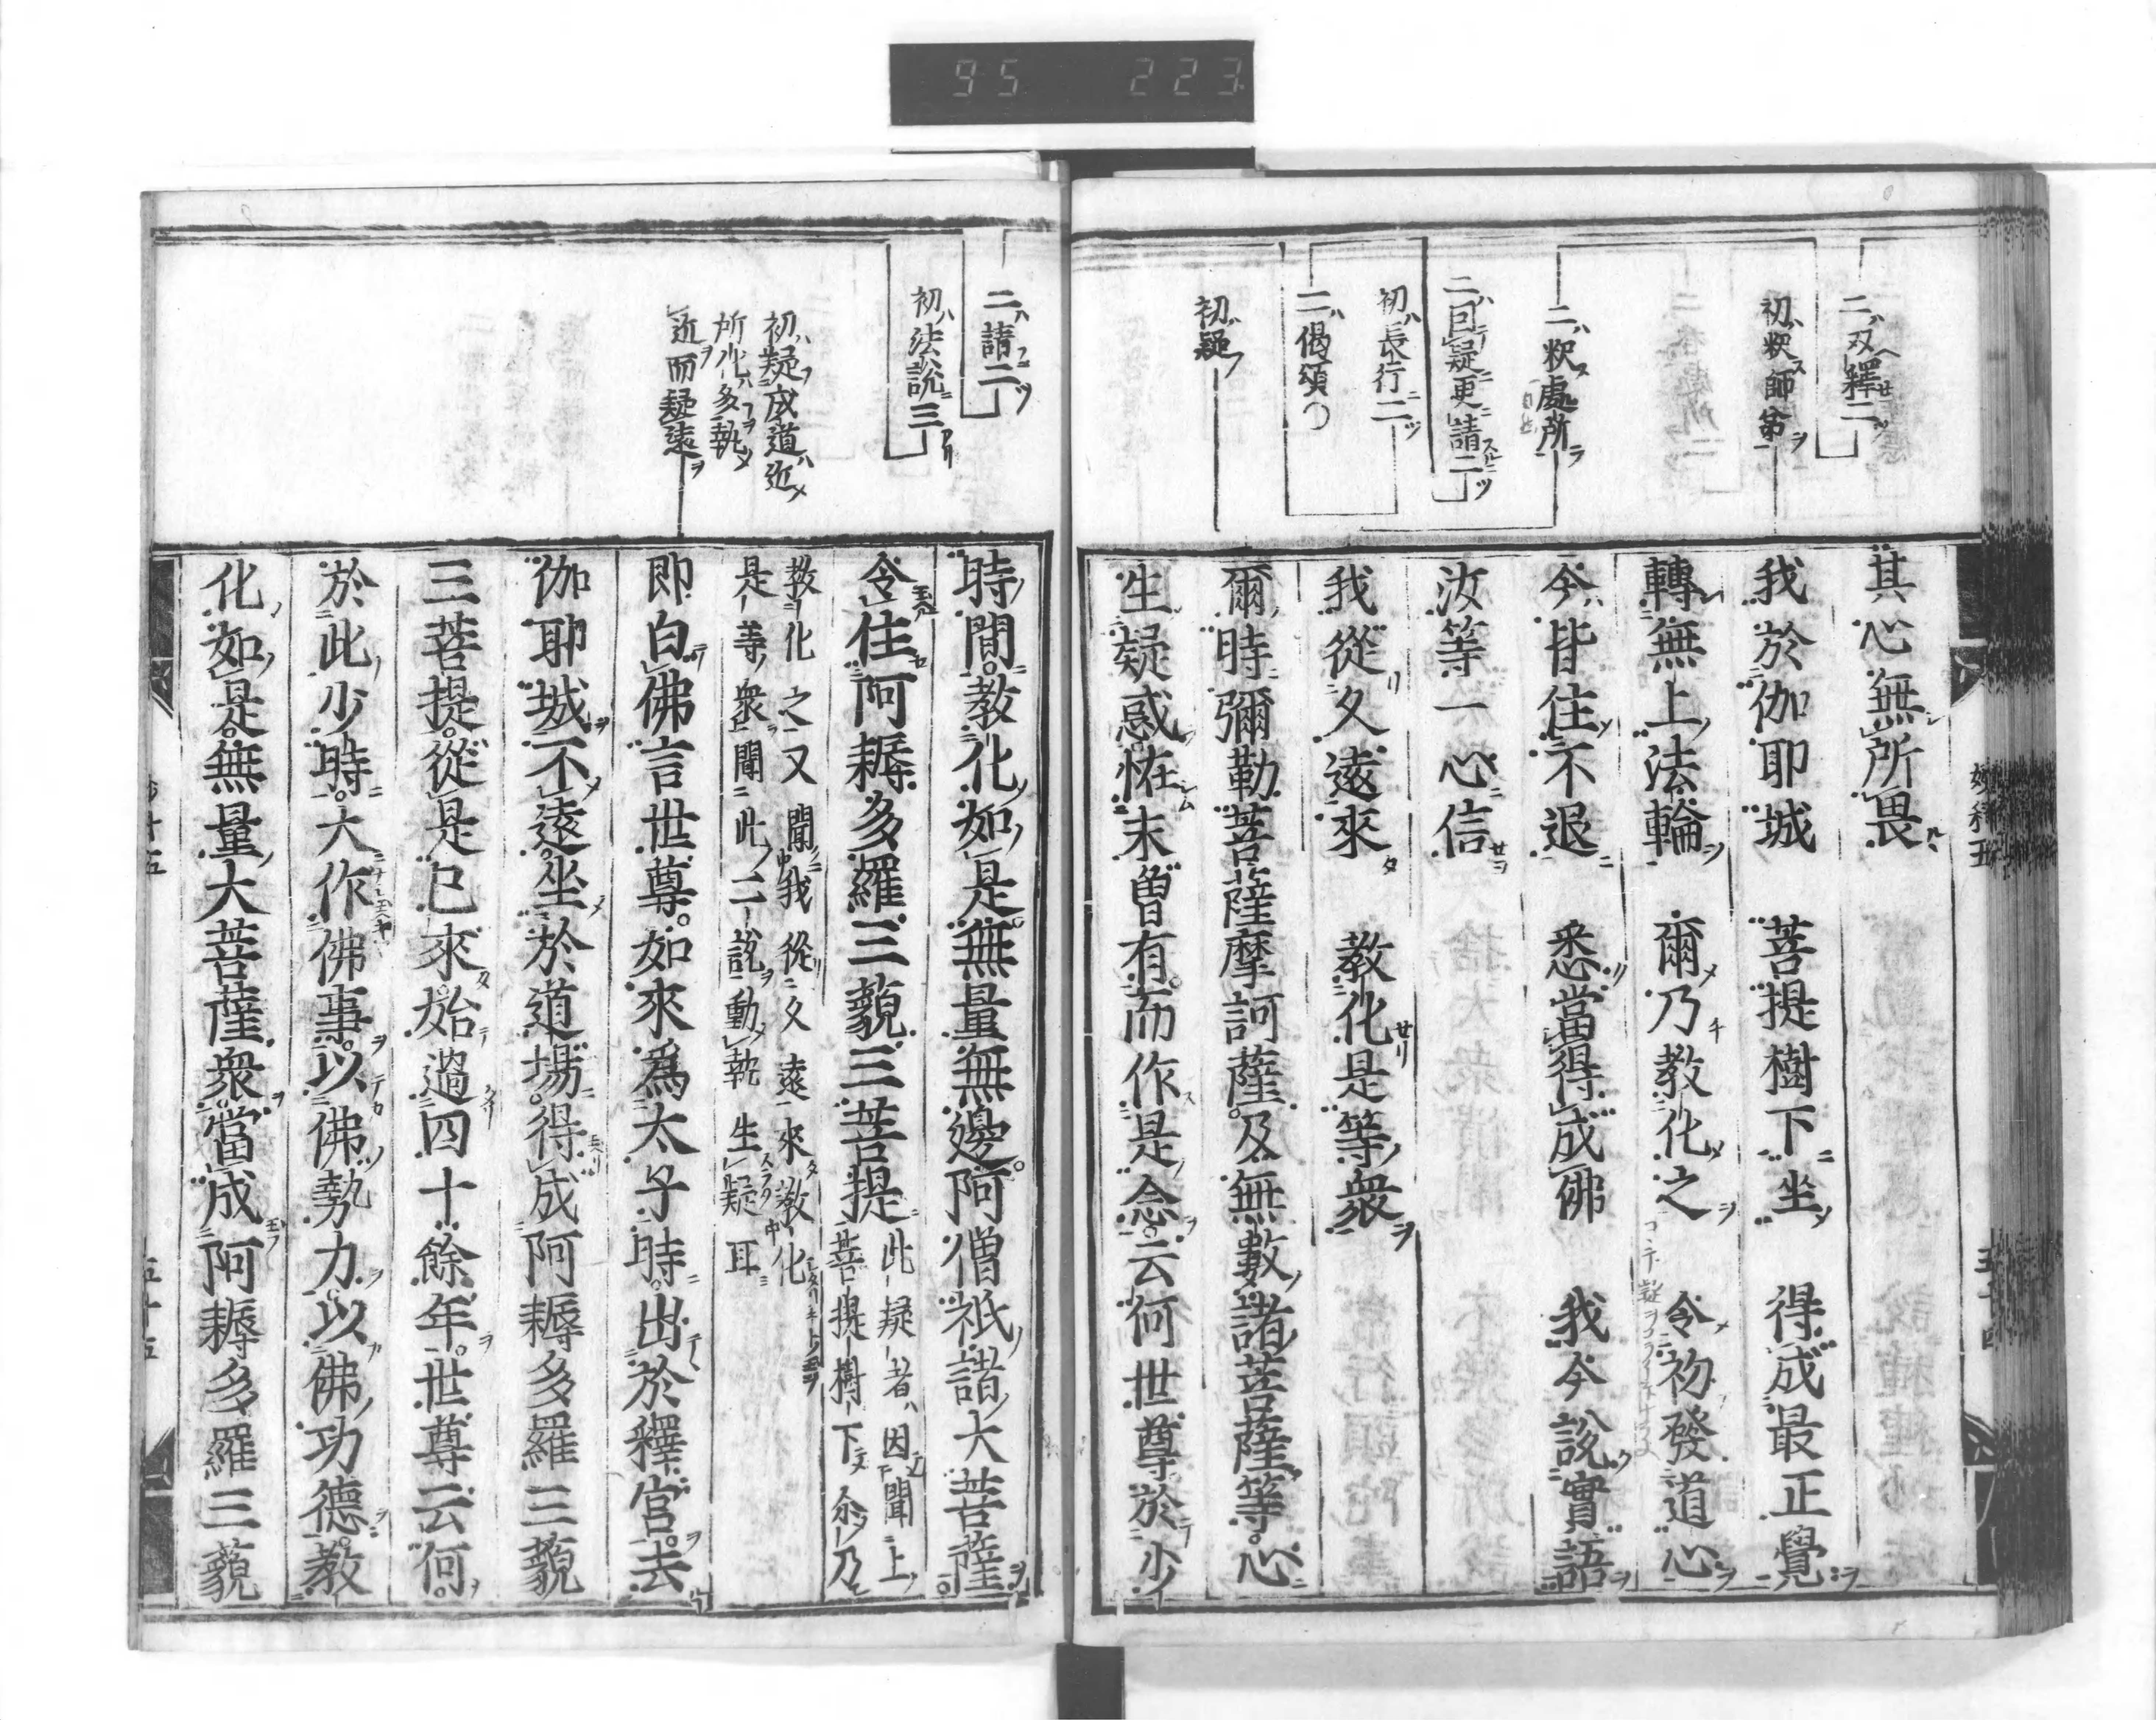 95 223
二双釋二
初釈師弟
二釈處所
二回疑更請二
初長行二
二偈頌
初疑
其心無所畏
我於伽耶城 菩提樹下坐 得成最正覺
轉無上法輪 爾乃教化之 令初發道心
今皆住不退 悉當得成佛 我今說實語
汝等一心信
我從久遠來 教化是等衆
爾時彌勒菩薩摩訶薩及無數諸菩薩等心
生疑惑怪未曾有而作是念云何世尊於少
二請二
初法說三
初疑成道近
所化多執
近而疑遠
時間教化如是無量無邊阿僧祇諸大菩薩
令住阿耨多羅三藐三菩提此疑者因聞上
菩提樹下尒乃
教化之又聞我從久遠來教化
是等衆聞此二說動執生疑耳
即白佛言世尊如來爲太子時出於釋宮去
伽耶城不遠坐於道場得成阿耨多羅三藐
三菩提從是已來始過四十餘年世尊云何
於此少時大作佛事以佛勢力以佛功德教
化如是無量大菩薩衆當成阿耨多羅三藐